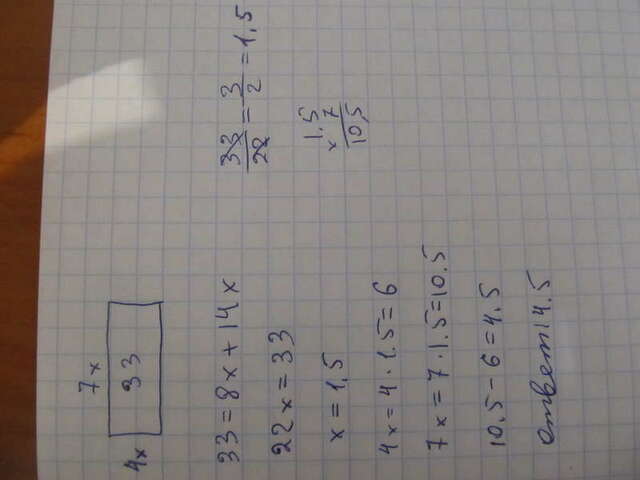 7x
4x 33
33=8x+14x
22x=33
x=1,5
4x=4·1.5=6
7x=7·1.5=10.5
10.5-6=4.5
ответ 4.5
33/22=3/2=1,5
1,5
×7
10,5